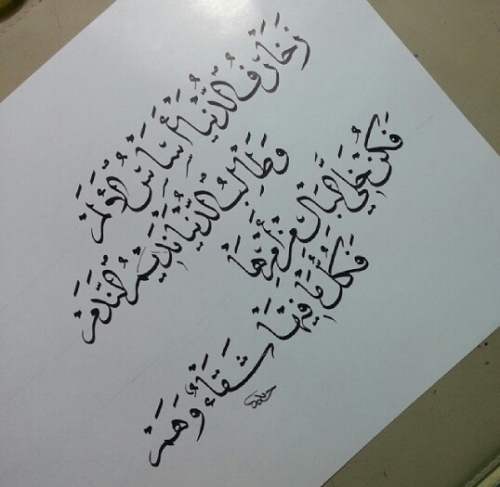 زَخَارِفُ الدُّنْيَا أَسَاسُ الأَلَمْ
وَطَالِبُ الدُّنْيَا نَدِيمُ النَّدَمْ
فَكُنْ خَلِيَّ البَالِ مِنْ أَمْرِهَا
فَكُلُّ مَا فِيهَا شَقَاءٌ وَهَمْ